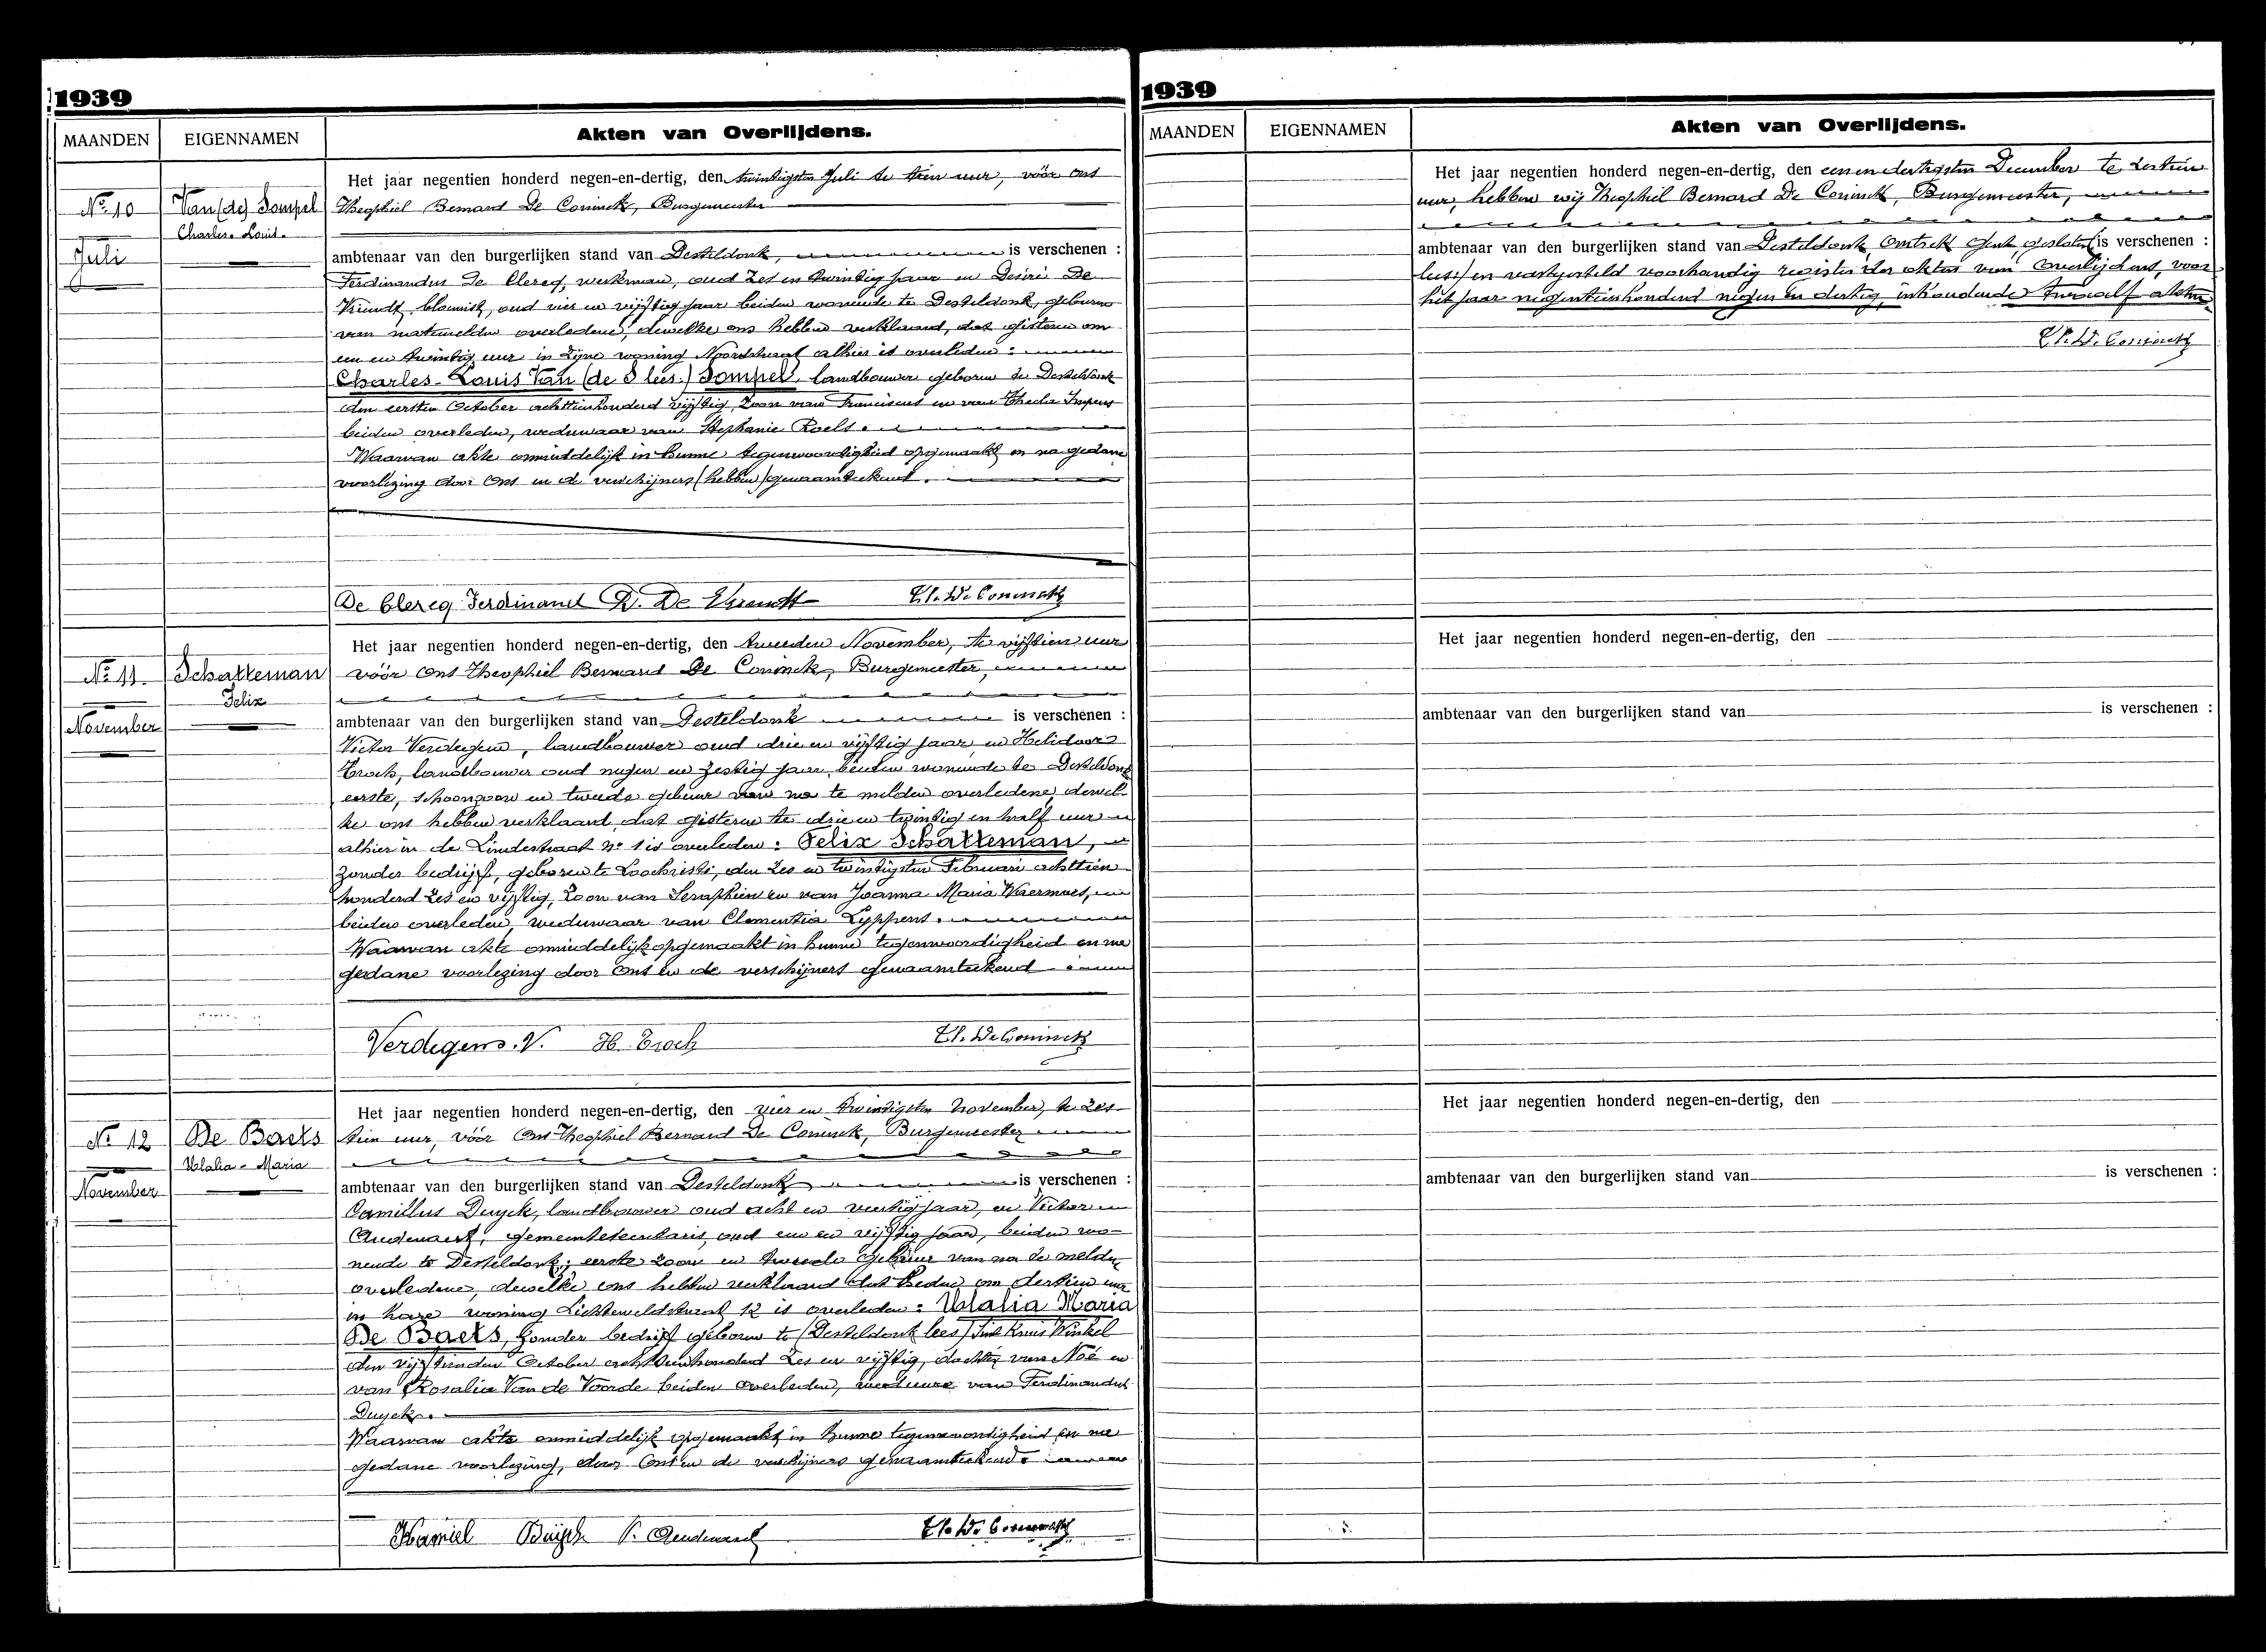 1939
MAANDEN
EIGENNAMEN
Akten van Overlijdens.
Nº 10
Juli
Van (de) Sompel
Charles-Louis.
Het jaar negentien honderd negen-en-dertig, den twintigsten Juli te tien uur, vóór ons
Theophiel Bernard De Coninck, Burgemeester
ambtenaar van den burgerlijken stand van Desteldonk, is verschenen :
Ferdinandus De Clercq, werkman, oud zes en twintig jaar en Desiré De
Vriendt, bloemist, oud vier en vijftig jaar beiden wonende te Desteldonk, geburen
van natemelden overledene, dewelke ons hebben verklaard, dat gisteren om
een en twintig uur in zijne woning Noordstraat alhier is overleden :
Charles-Louis Van (de S lees:) Sompel, landbouwer geboren te Desteldonk
den eersten October achttienhonderd vijftig, zoon van Franciscus en van Thecla Impens
beiden overleden, weduwaar van Stephanie Roels.
Waarvan akte onmiddelijk in hunne tegenwoordigheid opgemaakt en na gedane
voorlezing door Ons en de verschijners (hebben) genaamteekend.
De Clercq Ferdinand D. De Vriendt Th. De Coninck
Nº 11.
November
Schatteman
Felix
Het jaar negentien honderd negen-en-dertig, den tweeden November, te vijftien uur
vóór Ons Theophiel Bernard De Coninck, Burgemeester,
ambtenaar van den burgerlijken stand van Desteldonk is verschenen :
Victor Verdegem, landbouwer oud drie en vijftig jaar, en Helidoor
Troch, landbouwer oud negen en zestig jaar, beiden wonende te Desteldonk
eerste, schoonzoon en tweede gebuur van na te melden overledene, dewel-
ke ons hebben verklaard, dat gisteren te drie en twintig en half uur
alhier in de Lindestraat nº 1 is overleden : Felix Schatteman,
zonder bedrijf, geboren te Loochristi, den zes en twintigsten Februari achttien
honderd zes en vijftig, zoon van Seraphien en van Joanna Maria Waermoes,
beiden overleden, weduwaar van Clementia Lyppens.
Waarvan akte onmiddelijk opgemaakt in hunne tegenwoordigheid en na
gedane voorlezing door Ons en de verschijners genaamteekend
Verdegem. V. H. Troch Th. De Coninck
Nº 12
November
De Baets
Ulalia-Maria
Het jaar negentien honderd negen-en-dertig, den vier en twintigsten November, te zes
tien uur, vóór Ons Theophiel Bernard De Coninck, Burgemeester
ambtenaar van den burgerlijken stand van Desteldonk is verschenen :
Camillus Duyck, landbouwer oud acht en veertig jaar, en Victor
Audenaert, gemeentesecretaris, oud een en vijftig jaar, beiden wo-
nende te Desteldonk, eerste zoon en tweede gebuur van na te melden
overledene, dewelke ons hebben verklaard dat heden om dertien uur
in hare woning Lichtelveldstraat 12 is overleden : Ulalia Maria
De Baets, zonder bedrijf geboren te (Desteldonk lees) Sint Kruis Winkel
den vijftienden October achttienhonderd zes en vijftig, dochter van Noë en
van Rosalia Van de Voorde beiden overleden, weduwe van Ferdinandus
Duyck.
Waarvan akte onmiddelijk opgemaakt in hunne tegenwoordigheid en na
gedane voorlezing, door Ons en de verschijners genaamteekend.
Kamiel Duyck V. Audenaert Th. De Coninck
1939
MAANDEN
EIGENNAMEN
Akten van Overlijdens.
Het jaar negentien honderd negen-en-dertig, den een en dertigsten December te zestien
uur, hebben wij Theophiel Bernard De Coninck, Burgemeester,
ambtenaar van den burgerlijken stand van Desteldonk, Omtrek Gent, gesloten (is verschenen :
lees) en vastgesteld voorhandig register der akten van Overlijdens, voor
het jaar negentienhonderd negen en dertig, inhoudende twaalf akten
Th. De Coninck
Het jaar negentien honderd negen-en-dertig, den
ambtenaar van den burgerlijken stand van is verschenen :
Het jaar negentien honderd negen-en-dertig, den
ambtenaar van den burgerlijken stand van is verschenen :